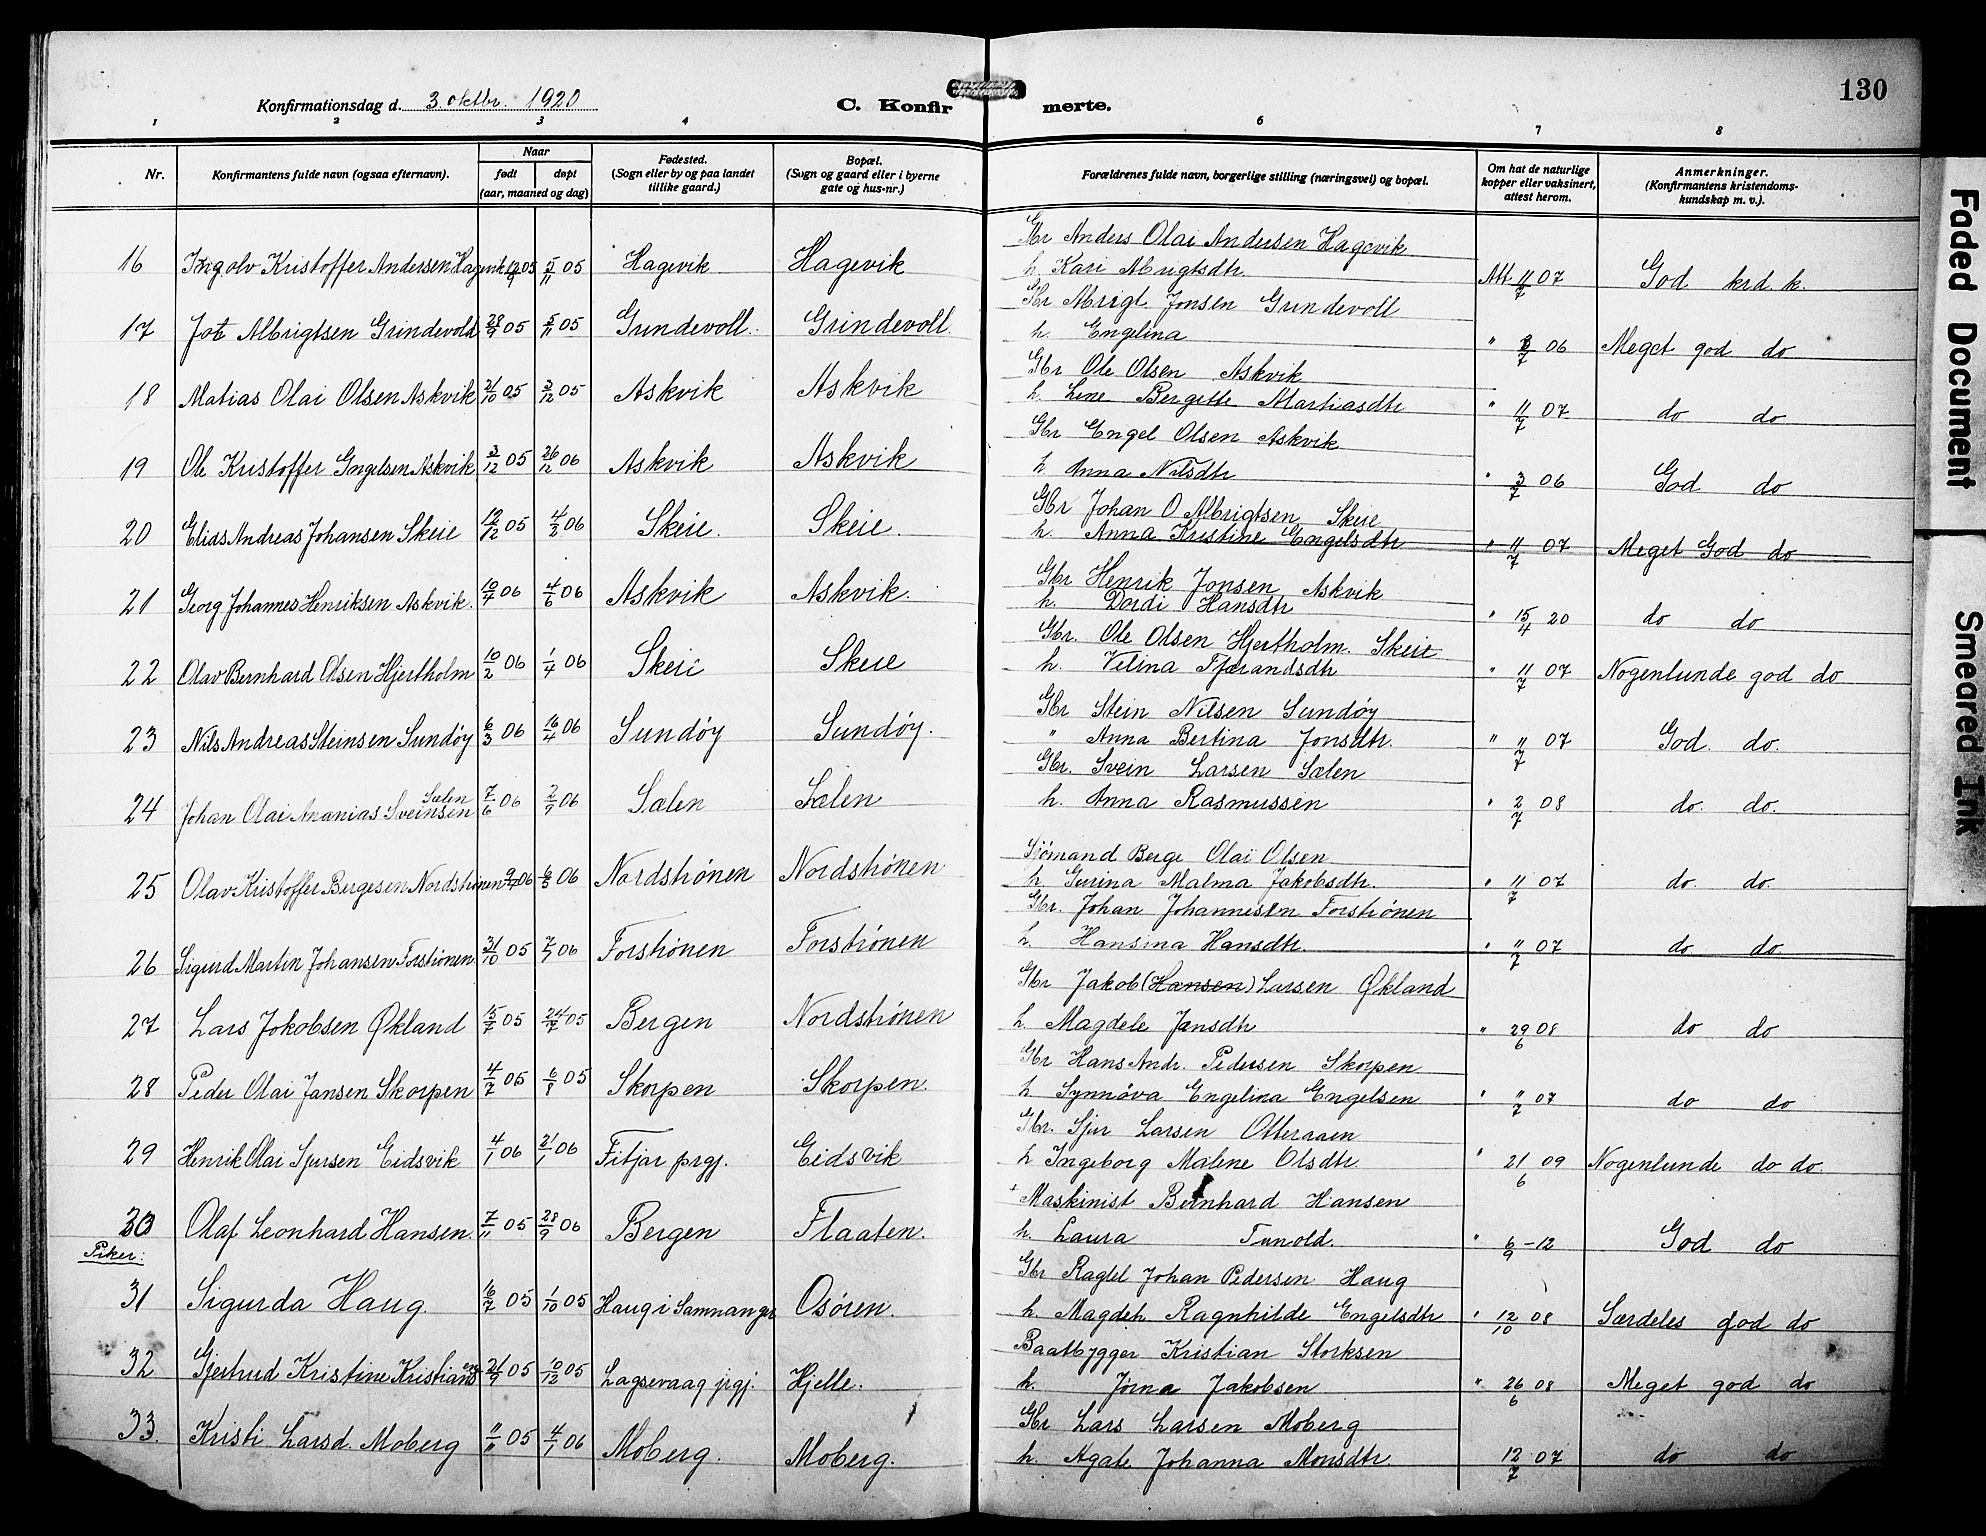 130
Konfirmationsdag d. 3. oktbr. 1920
C. Konfirmerte.
1 2 3 4 5 6 7 8
Nr.
Konfirmantens fulde navn (ogsaa efternavn).
Naar
født døpt
(aar, maaned og dag)
Fødested.
(Sogn eller by og paa landet
tillike gaard.)
Bopæl.
(Sogn og gaard eller i byerne
gate og hus-nr.)
Forældrenes fulde navn, borgerlige stilling (næringsvei) og bopæl.
Om hat de naturlige
kopper eller vaksinert,
attest herom.
Anmerkninger.
(Konfirmantens kristendoms-
kundskap m. v.).
Gbr Anders Olai Andersen Hagevik
16 Ingolv Kristoffer Andersen Hagevik 05 5/11 05 Hagevik Hagevik h. Kari Abrigtsdtr. Att 11/7 07 God krd k.
Gbr Abrigt Jonsen Grindevoll
17 Albrigtsen Grindevold 28/9 05 5/11 05 Grindevoll. Grindevoll. h. Engelina " 7 06 Meget god do
Gbr Ole Olsen Askvik
18 Matias Olai Olsen Askvik 21/10 05 3/12 05 Askvik Askvik h. Lene Bergitte Martiasdtr " 11/7 07 do do
Gbr Engel Olsen Askvik
19 Ole Kristoffer Engelsen Askvik 3/12 05 26/12 06 Askvik Askvik h. Anna Nilsdtr " 3/7 06 God do
Gbr Johan O Albrigtsen Skeie
20 Elias Andreas Johansen Skeie 12/12 05 4/2 06 Skeie. Skeie. h. Anna Kristine Engelsdtr " 11/7 07 Meget God do
Gbr Henrik Jonsen Askvik
21 Georg Johannes Henriksen Askvik. 10/4 06 4/6 06 Askvik Askvik. h. Dordi Hansdtr " 15/4 20 do do
Gbr. Ole Olsen Hjertholm Skeie
22 Olav Bernhard Olsen Hjertholm 10/2 06 1/4 06 Skeie Skeie h. Velina Tjærandsdtr " 11/7 07 Nogenlunde god do
Gbr Stein Nilsen Sundøy
23 Nils Andreas Steinsen Sundøy 6/3 06 16/4 06 Sundøy Sundøy. " Anna Bertina Jonsdtr. " 11/7 07 God. do.
Gbr. Svein Larsen Sælen
24 Johan Olai Ananias Sveinsen Sælen 7/6 06 2/9 06 Sælen Sælen h. Anna Rasmussen " 2/7 08 do. do.
Sjömand Berge Olai Olsen
25 Olav Kristoffer Bergesen Nordströnen 06 6/5 06 Nordströnen Nordströnen h Gurina Malma Jakobsdtr. " 11/7 07 do. do.
Gbr. Johan Johannesen Forströnen
26 Sigurd Martin Johansen Forströnen 31/10 05 7/1 06 Forströnen Forströnen h. Hansina Hansdtr. " 11/7 07 do do.
Gbr Jakob (Hansen) Larsen Økland
27 Lars Jokobsen Økland 15/7 05 24/7 05 Bergen Nordströnen h. Magdele Jansdtr " 29/6 08 do do
Gbr Hans Andr. Pedersen Skorpen
28 Peder Olai Jansen Skorpen 4/7 05 6/8 05 Skorpen Skorpen. h Synnøva Engelina Engelsen " 11/7 07 do do
Gbr. Sjur Larsen Otteraaen
29 Henrik Olai Sjursen Eidsvik 4/1 06 21/1 06 Fitjar prgj. Eidsvik h Ingeborg Malene Olsdtr. " 21/6 09 Nogenlunde do do.
+ Maskinist Bernhard Hansen
30 Olaf Leonhard Hansen. 7/11 05 28/9 06 Bergen Flaaten. h. Laura Tunold. " 6/9-12 God do
Piker:
Gbr Ragtel Johan Pedersen Haug
31 Sigurda Haug 16/7 05 1/10 05 Haug i Samnanger Osøren. h. Magdeh Ragnhilde Engelsdtr " 12/10 08 Særdeles god do
Baatbygger Kristian Storksen
32 Gjertrud Kristine Kristiansen 21/9 05 10/12 05 Lagsevaag prgj. Hjelle. h. Jorna Jakobsen " 26/6 08 Meget god do
Gbr Lars Larsen Moberg
33. Kristi Larsd Moberg 11/11 05 4/1 06 Moberg. Moberg. h. Agate Johanna Monsdtr. 12/7 07 do do
Faded Document
Smeared Ink